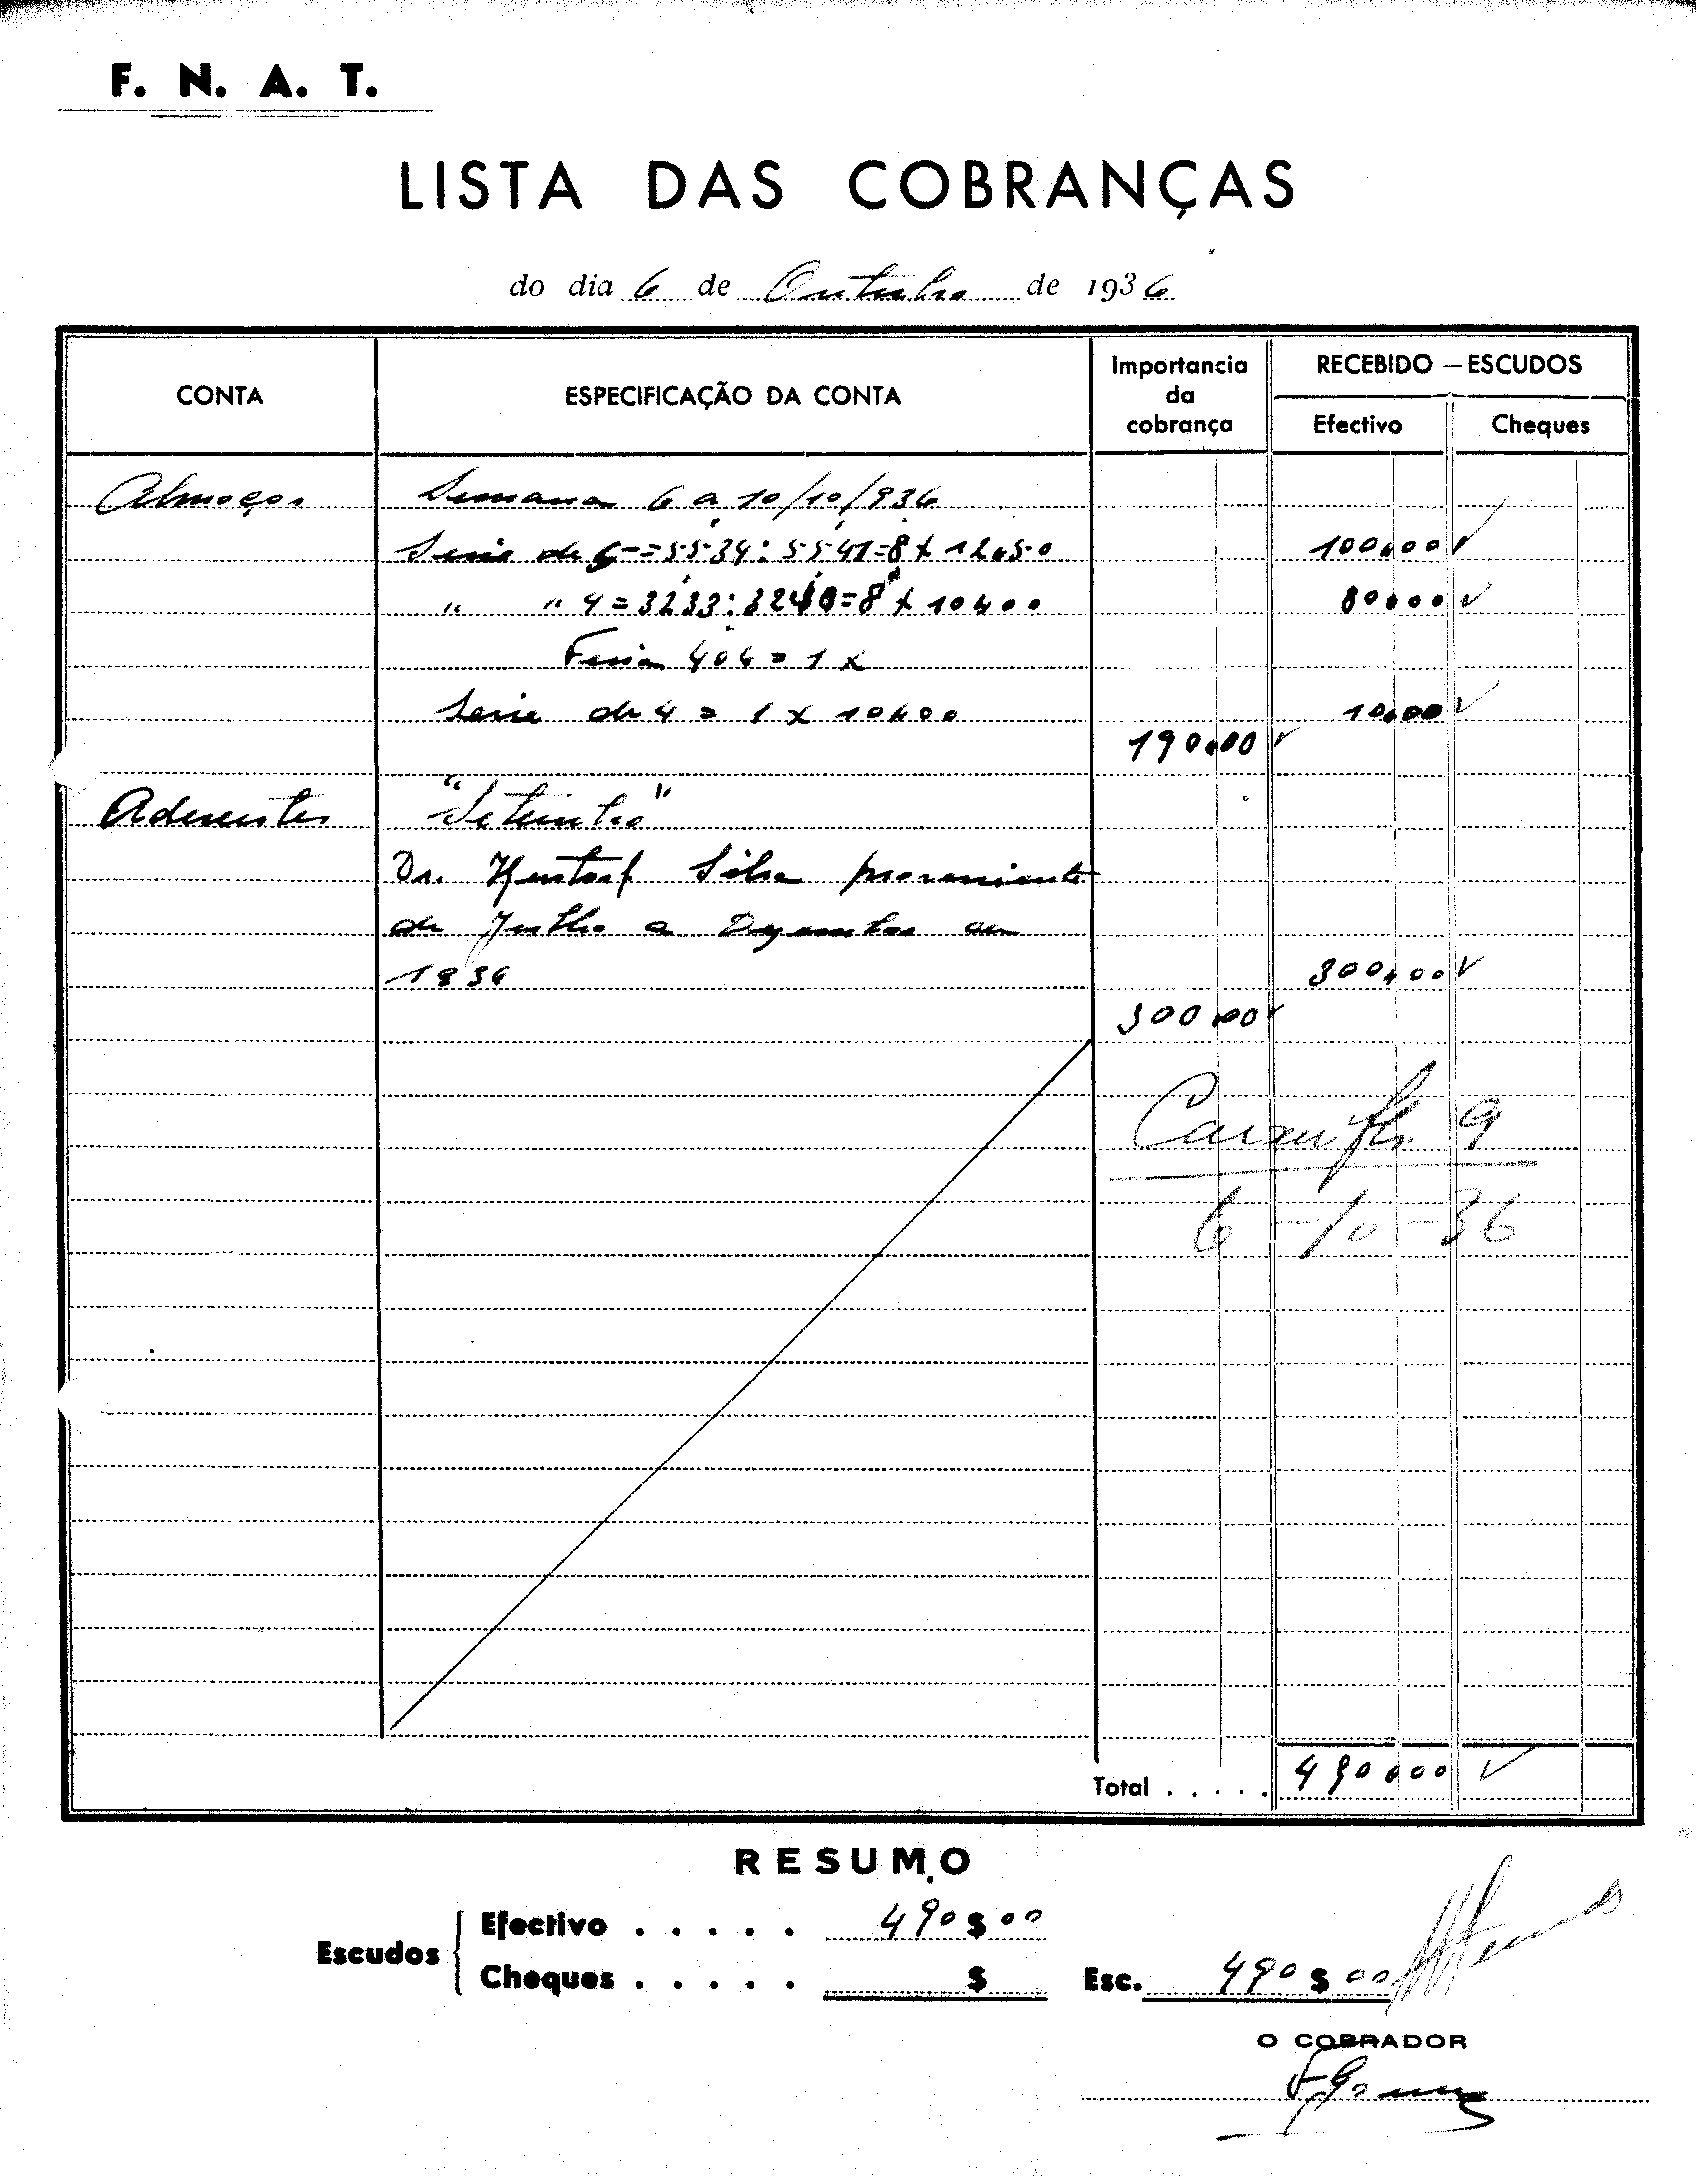 F. N. A. T.
LISTA DAS COBRANÇAS
do dia 6 de Outubro de 1936
CONTA
ESPECIFICAÇÃO DA CONTA
Importancia da cobrança
RECEBIDO — ESCUDOS
Efectivo
Cheques
Almoços Semana 6 a 10/10/936
Serie de 5 = 5534 : 5541 = 8 x 12$50 100$00
" " 4 = 3233 : 3240 = 8 x 10$00 80$00
404 = 1 x
Serie de 4 = 1 x 10$00 10$00
190$00
Aderentes
Dr. Silva proveniente
de Julho a Dezembro de
1936 300$00
300$00
9
6-10-36
Total . . . . . 490$00
RESUMO
Escudos
Efectivo . . . . . 490$00
Cheques . . . . . $
Esc. 490$00
O COBRADOR